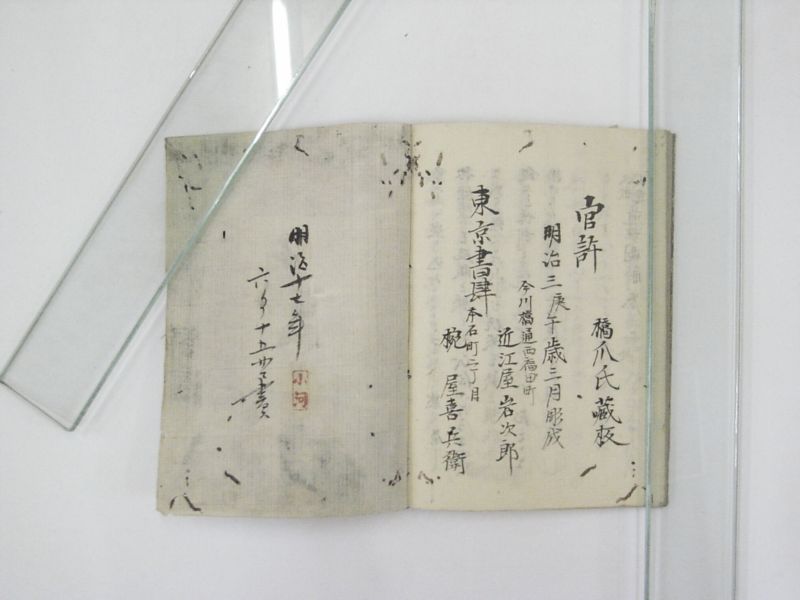 官許
橋爪氏藏板
明治三庚午歳三月彫成
今川橋通西福田町
近江屋岩次郎
東京書肆
本石町二丁目
椀屋喜兵衛
明治十七年
小河